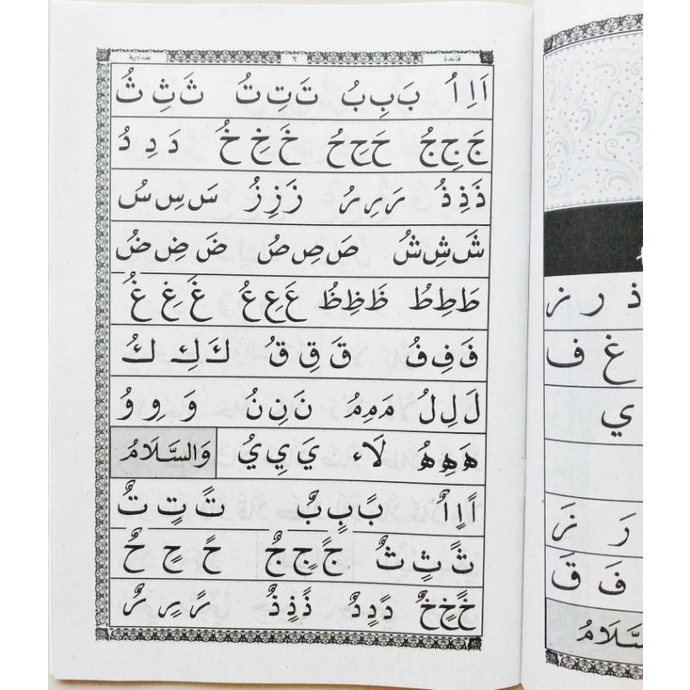 قاعدة ٢ بغدادية
اَ اِ اُ بَ بِ بُ تَ تِ تُ ثَ ثِ ثُ
جَ جِ جُ حَ حِ حُ خَ خِ خُ دَ دِ دُ
ذَ ذِ ذُ رَ رِ رُ زَ زِ زُ سَ سِ سُ
شَ شِ شُ صَ صِ صُ ضَ ضِ ضُ
طَ طِ طُ ظَ ظِ ظُ عَ عِ عُ غَ غِ غُ
فَ فِ فُ قَ قِ قُ كَ كِ كُ
لَ لِ لُ مَ مِ مُ نَ نِ نُ وَ وِ وُ
هَ هِ هُ لَاء يَ يِ يُ وَالسَّلَامُ
اً اٍ اٌ بً بٍ بٌ تً تٍ تٌ
ثً ثٍ ثٌ جً جٍ جٌ حً حٍ حٌ
خً خٍ خٌ دً دٍ دٌ ذً ذٍ ذٌ رً رٍ رٌ
ذ ر ز
غ ف
ي
رَ زَ
فَ قَ